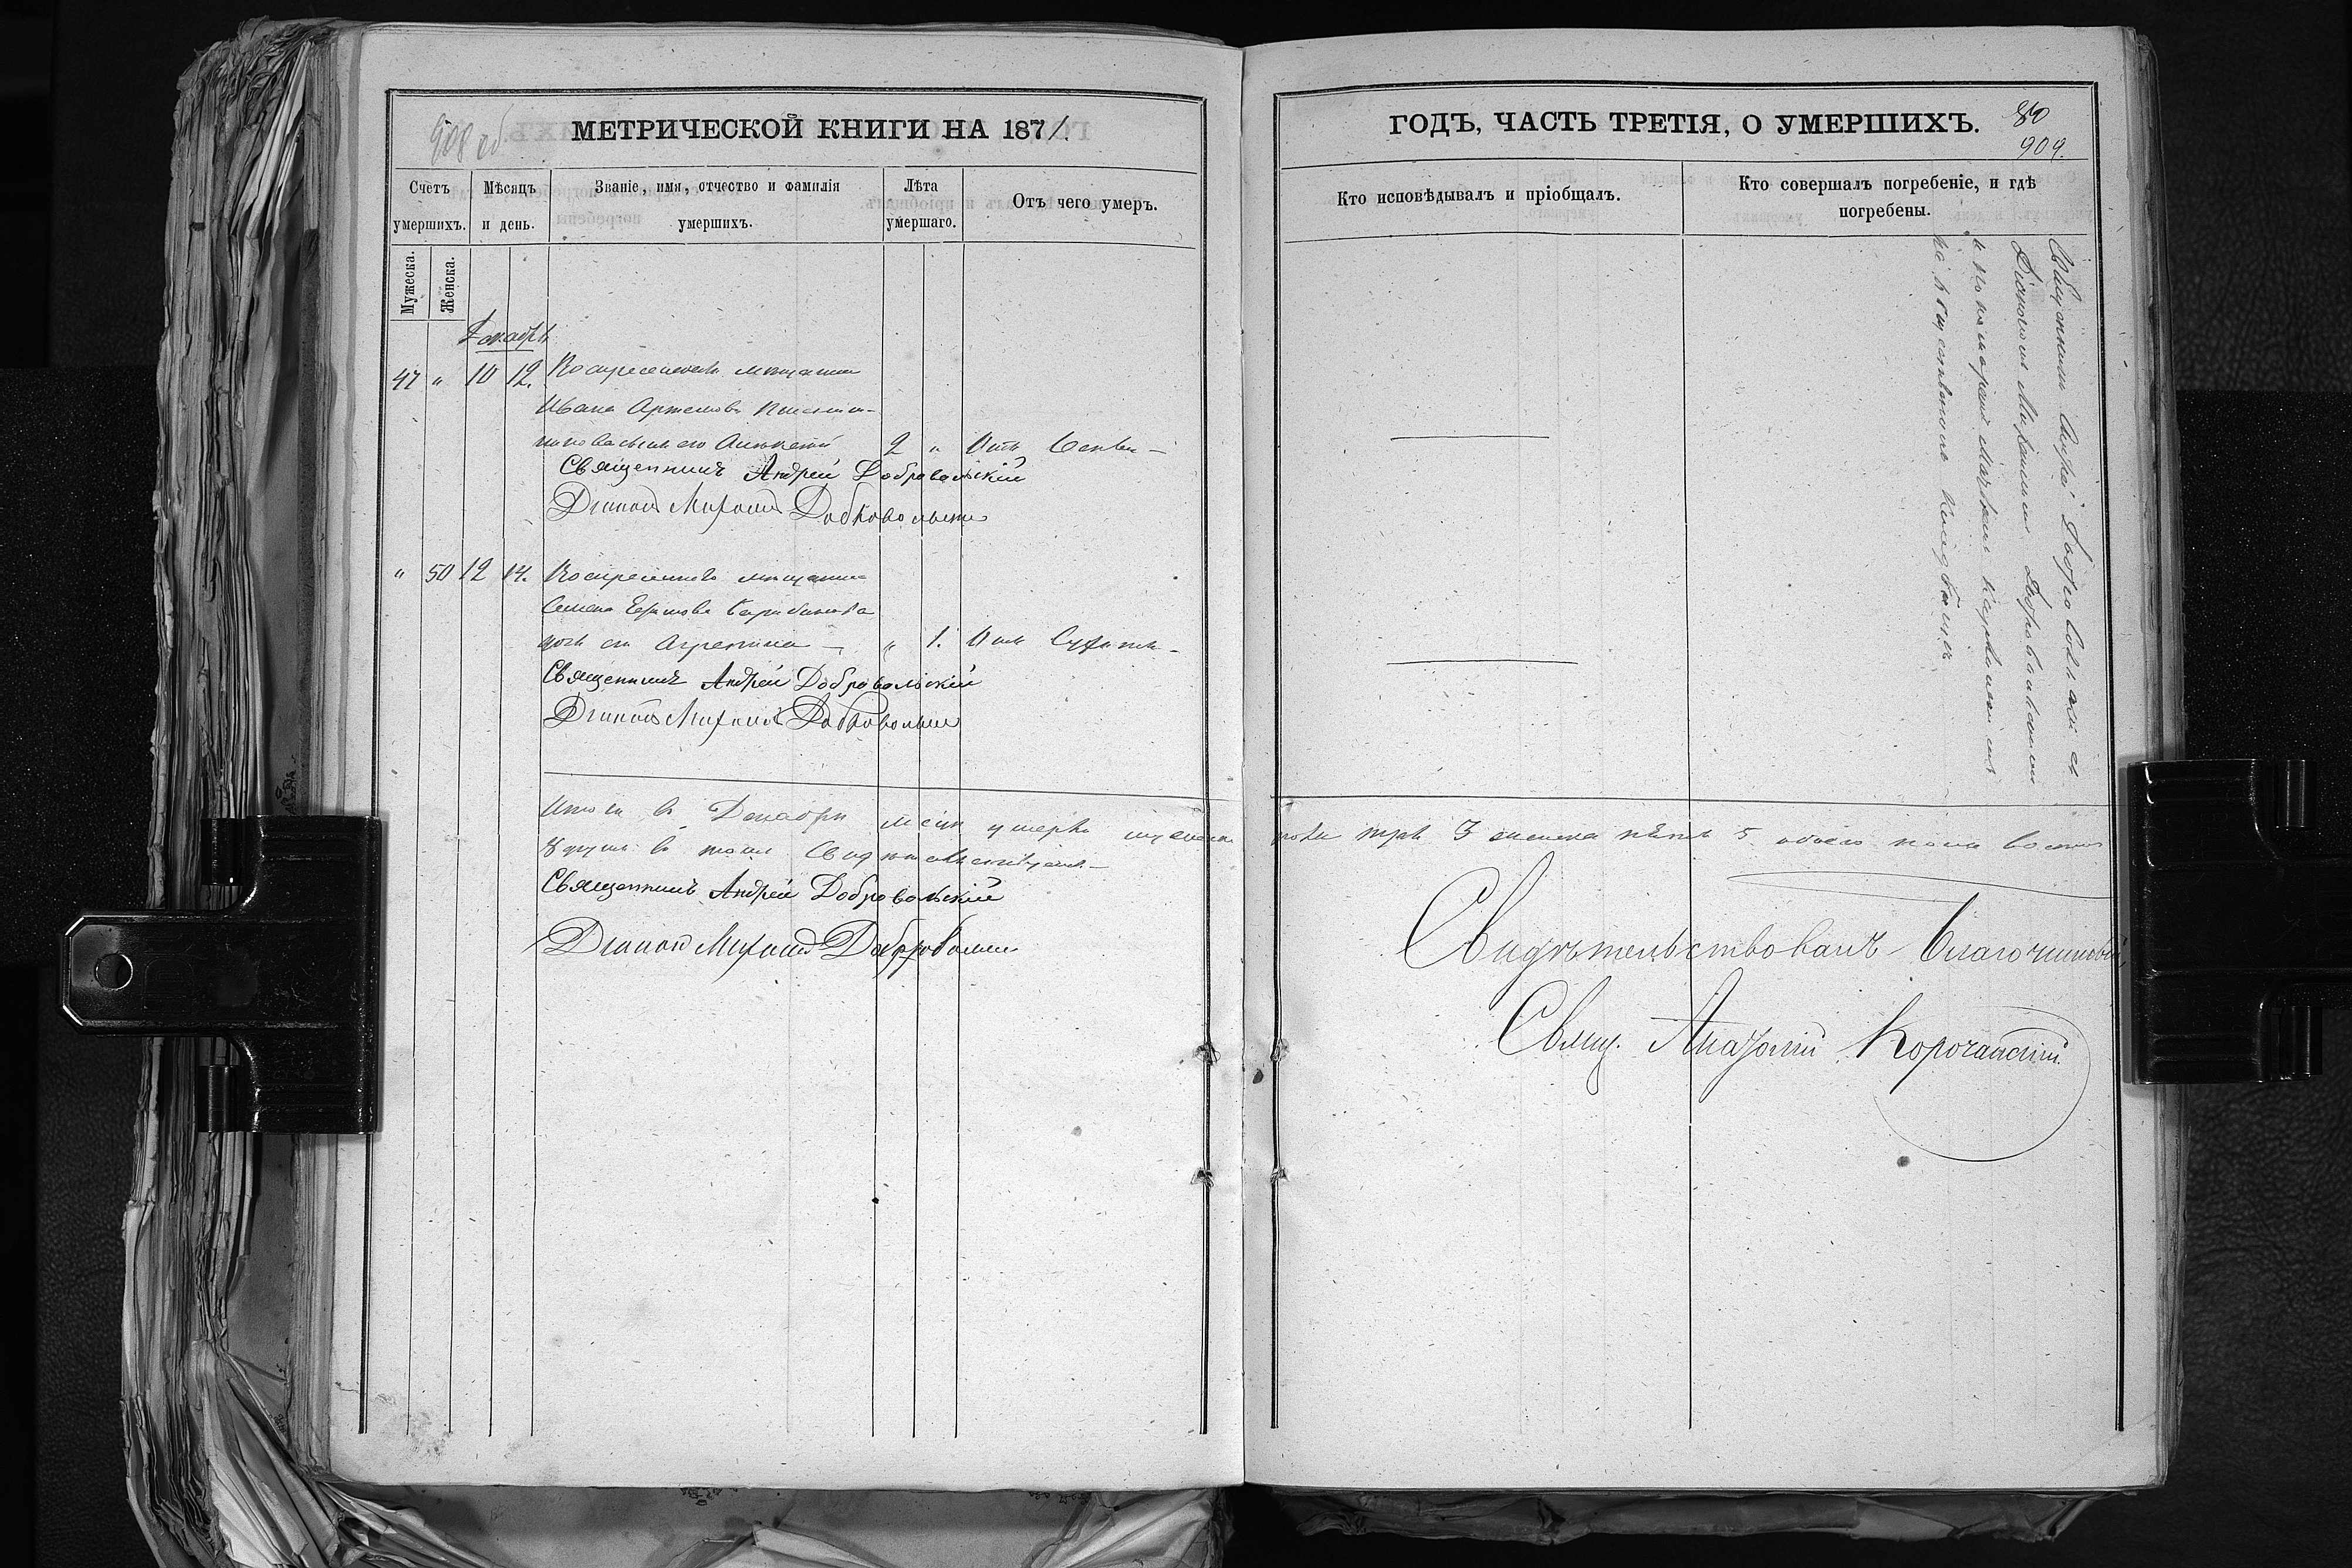 908 об.
МЕТРИЧЕСКОЙ КНИГИ НА 1871
Счетъ умершихъ.
Мѣсяцъ и день.
Званіе, имя, отчество и фамилія умершихъ.
Лѣта умершаго.
Отъ чего умеръ.
Мужеска.
Женска.
Декабрь
47 " 10 12. мещанина
Ивана Артемова
сынъ его 2 " Отъ
Священникъ Андрей Добровольскій
Діаконъ Михаилъ Добровольскій
" 50 12 14. мещанина
Семена
дочь его Агрепина — " 1. Отъ
Священникъ Андрей Добровольскій
Діаконъ Михаилъ Добровольскій
Итого въ Декабрѣ мсцѣ умерло мужеска
въ томъ свидѣтельствуемъ —
Священникъ Андрей Добровольскій
Діаконъ Михаилъ Добровольскій
ГОДЪ, ЧАСТЬ ТРЕТІЯ, О УМЕРШИХЪ.
80
909.
Кто исповѣдывалъ и пріобщалъ.
Кто совершалъ погребеніе, и гдѣ погребены.
Священникъ Андрей Добровольскій съ
Діакономъ Михаиломъ Добровольскимъ
на кладбищѣ
пола три 3 женска пять 5 обоего пола восемь
Свидѣтельствовалъ Благочинный,
Свящ. Анатолій Корочанскій